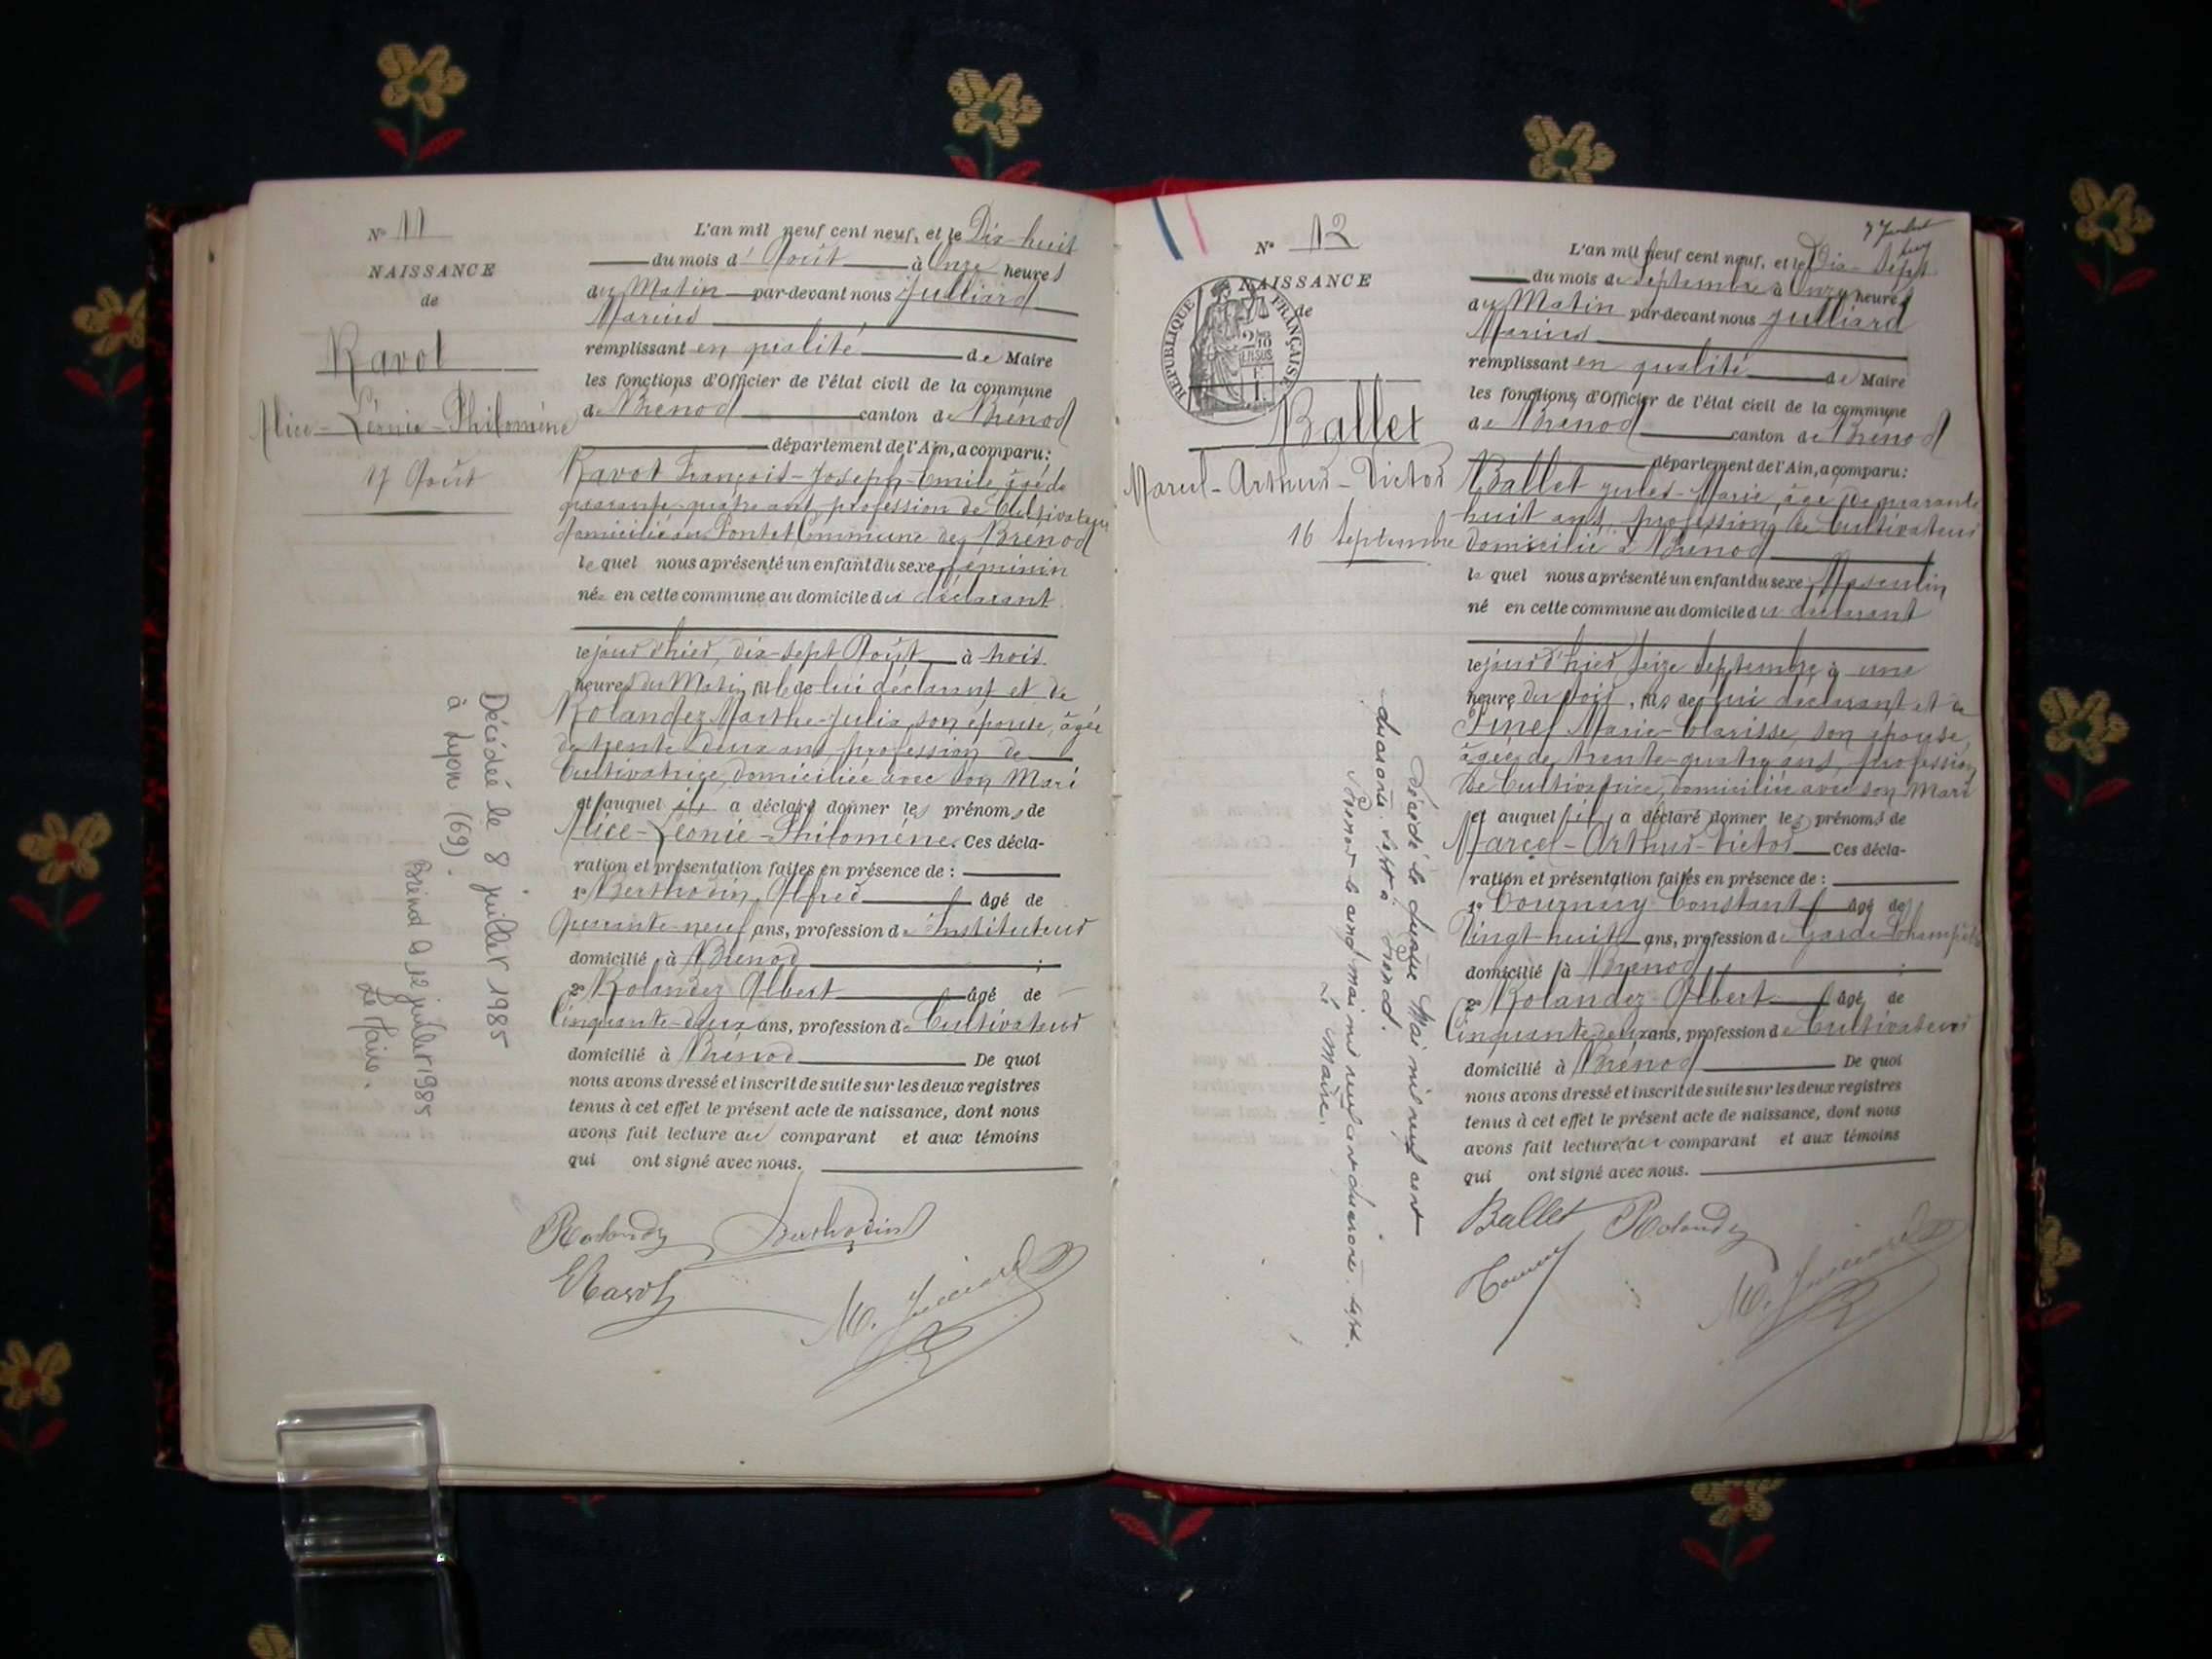 N° 11
NAISSANCE
de
Ravot
Alice-Léonie-Philomène
17 Août
L'an mil neuf cent neuf, et le Dix-huit
du mois d'Août à Onze heures
du Matin par-devant nous Julliard
Marius
remplissant en qualité de Maire
les fonctions d'Officier de l'état civil de la commune
de Brénod canton de Brénod
département de l'Ain, a comparu:
Ravot François-Joseph-Emile, âgé de
quarante-quatre ans, profession de Cultivateur
domicilié au Pontet Commune de Brénod
le quel nous a présenté un enfant du sexe féminin
née en cette commune au domicile du déclarant
le jour d'hier, dix-sept Août à trois
heures du Matin, fille de lui déclarant et de
Rolandez Marthe-Julia, son épouse, âgée
de trente-deux ans, profession de
Cultivatrice, domiciliée avec son Mari
et auquel il a déclaré donner les prénoms de
Alice-Léonie-Philomène. Ces décla-
ration et présentation faites en présence de :
1° Berthodin Alfred âgé de
Quarante-neuf ans, profession d'Instituteur
domicilié à Brénod ;
2° Rolandez Albert âgé de
Cinquante-deux ans, profession de Cultivateur
domicilié à Brénod De quoi
nous avons dressé et inscrit de suite sur les deux registres
tenus à cet effet le présent acte de naissance, dont nous
avons fait lecture au comparant et aux témoins
qui ont signé avec nous.
Rolandez Berthodin
Ravot
M. Julliard
Décédée le 8 juillet 1985
à Lyon (69).
Brénod le 12 juillet 1985
Le Maire.
N° 12
NAISSANCE
de
RÉPUBLIQUE FRANÇAISE
2/10
EN SUS
Ballet
Marcel-Arthur-Victor
16 Septembre
L'an mil neuf cent neuf, et le Dix-sept
du mois de Septembre à Onze heures
du Matin par-devant nous Julliard
Marius
remplissant en qualité de Maire
les fonctions d'Officier de l'état civil de la commune
de Brénod canton de Brénod
département de l'Ain, a comparu:
Ballet Jules-Marie, âgé de quarante
huit ans, profession de Cultivateur
domicilié à Brénod
le quel nous a présenté un enfant du sexe Masculin
né en cette commune au domicile du déclarant
le jour d'hier seize septembre à une
heure du soir, fils de lui déclarant et de
Pinel Marie-Clarisse, son épouse,
âgée de trente-quatre ans, profession
de Cultivatrice, domiciliée avec son Mari
et auquel il a déclaré donner les prénoms de
Marcel-Arthur-Victor Ces décla-
ration et présentation faites en présence de :
1° Tournery Constant âgé de
Vingt-huit ans, profession de Garde-Champêtre
domicilié à Brénod ;
2° Rolandez Albert âgé de
Cinquante-deux ans, profession de Cultivateur
domicilié à Brénod De quoi
nous avons dressé et inscrit de suite sur les deux registres
tenus à cet effet le présent acte de naissance, dont nous
avons fait lecture au comparant et aux témoins
qui ont signé avec nous.
Ballet Rolandez
M. Julliard
Décédé le quatre Mai mil neuf cent
quarante sept à Brénod.
Brénod le cinq mai mil neuf cent quarante sept.
Le Maire.